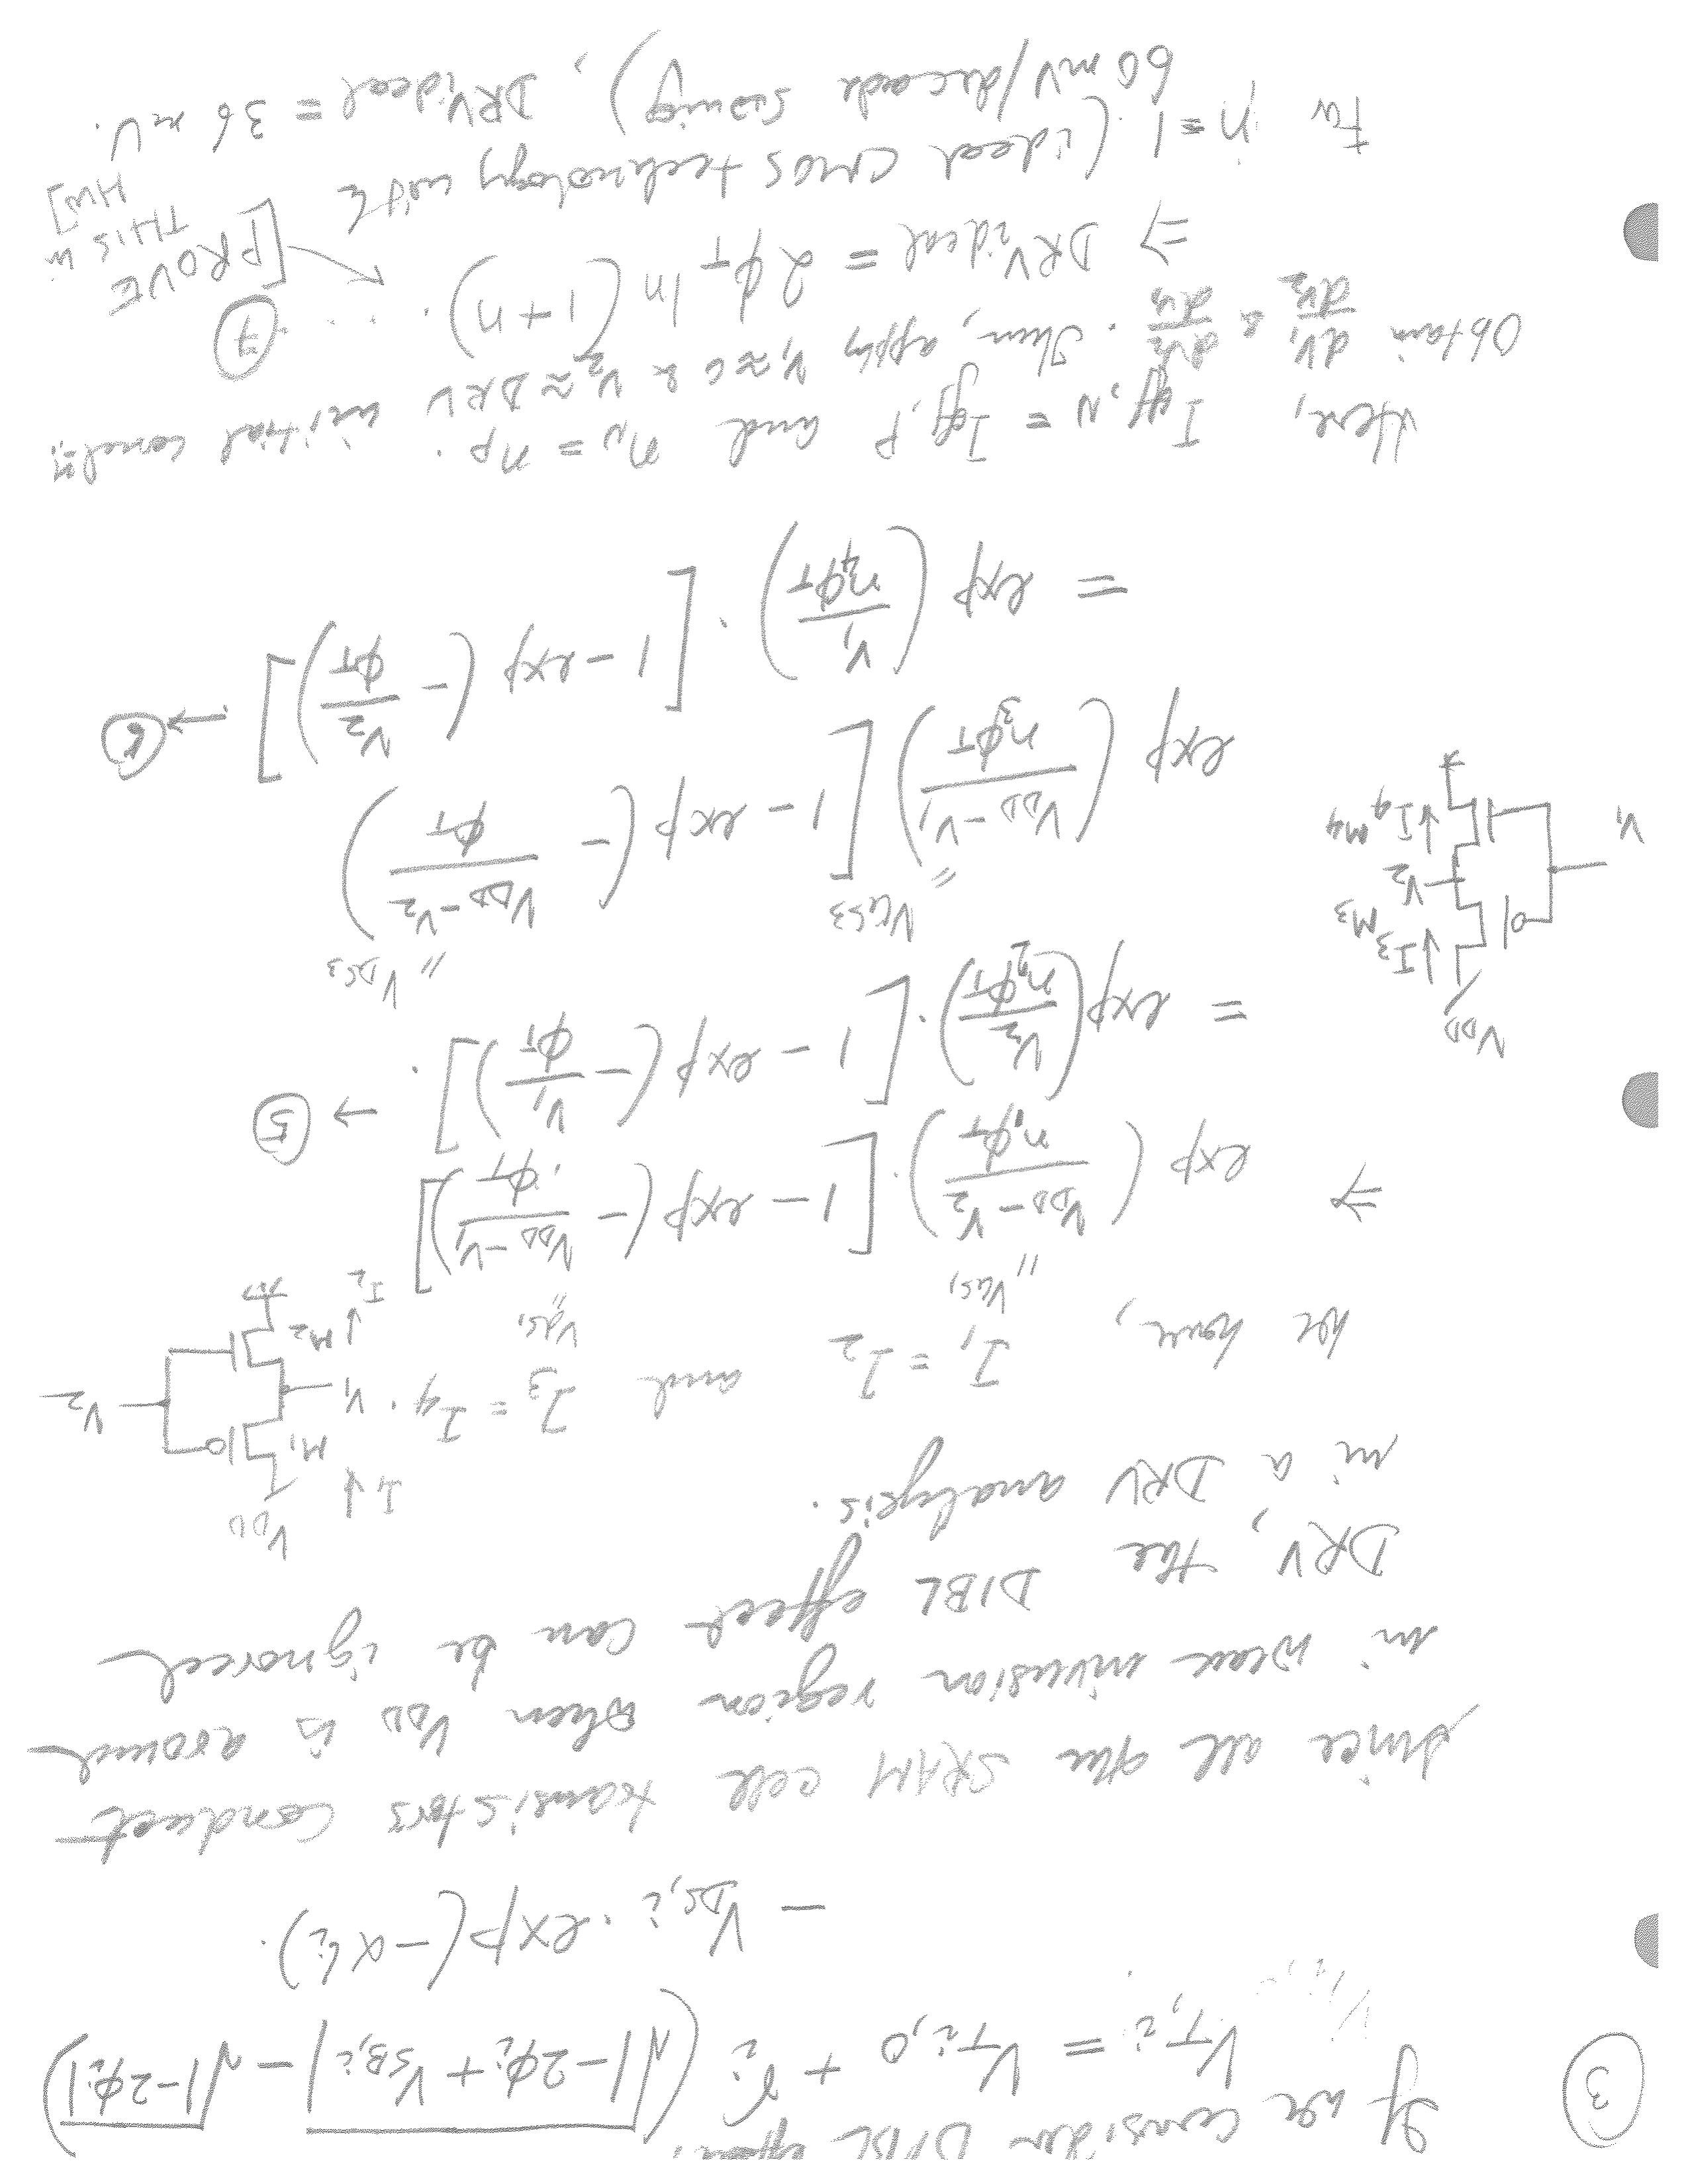 3
If we consider DIBL effect,
V_T,i = V_Ti,0 + γ_i (√|-2φ_i + V_SB,i| - √|-2φ_i|)
- V_DS,i . exp(-αL_i).
Since all the SRAM cell transistors conduct
in weak inversion region when V_DD is around
DRV, the DIBL effect can be ignored
in a DRV analysis.
V_DD
I_1 ↓ M_1
V_1 V_2
M_2 ↓ I_2
We have, I_1 = I_2 and I_3 = I_4.
" V_GS1 " V_DS1
⇒ exp((V_DD - V_2)/(n_1 φ_T)) . [1 - exp(-(V_DD - V_1)/φ_T)]
= exp(V_2/(n_2 φ_T)) . [1 - exp(-V_1/φ_T)] . → 5
V_DD
I_3 ↓ M_3
V_1 V_2
I_4 ↓ M_4
V_GS3 " " V_DS3
exp((V_DD - V_1)/(n_3 φ_T)) [1 - exp(-(V_DD - V_2)/φ_T)
= exp(V_1/(n_4 φ_T)) . [1 - exp(-V_2/φ_T)] . → 6
Here, I_off,N = I_off,P and n_N = n_P.
Obtain dV_1/dV_2 & dV_2/dV_1. Then, apply V_1 ≈ 0 & V_2 ≈ DRV initial condns,
⇒ DRV_ideal = 2 φ_T ln (1+n) . . . . 7
[PROVE
THIS in
HW]
For n=1 (ideal CMOS technology with
60 mV/decade swing), DRV_ideal = 36 mV.